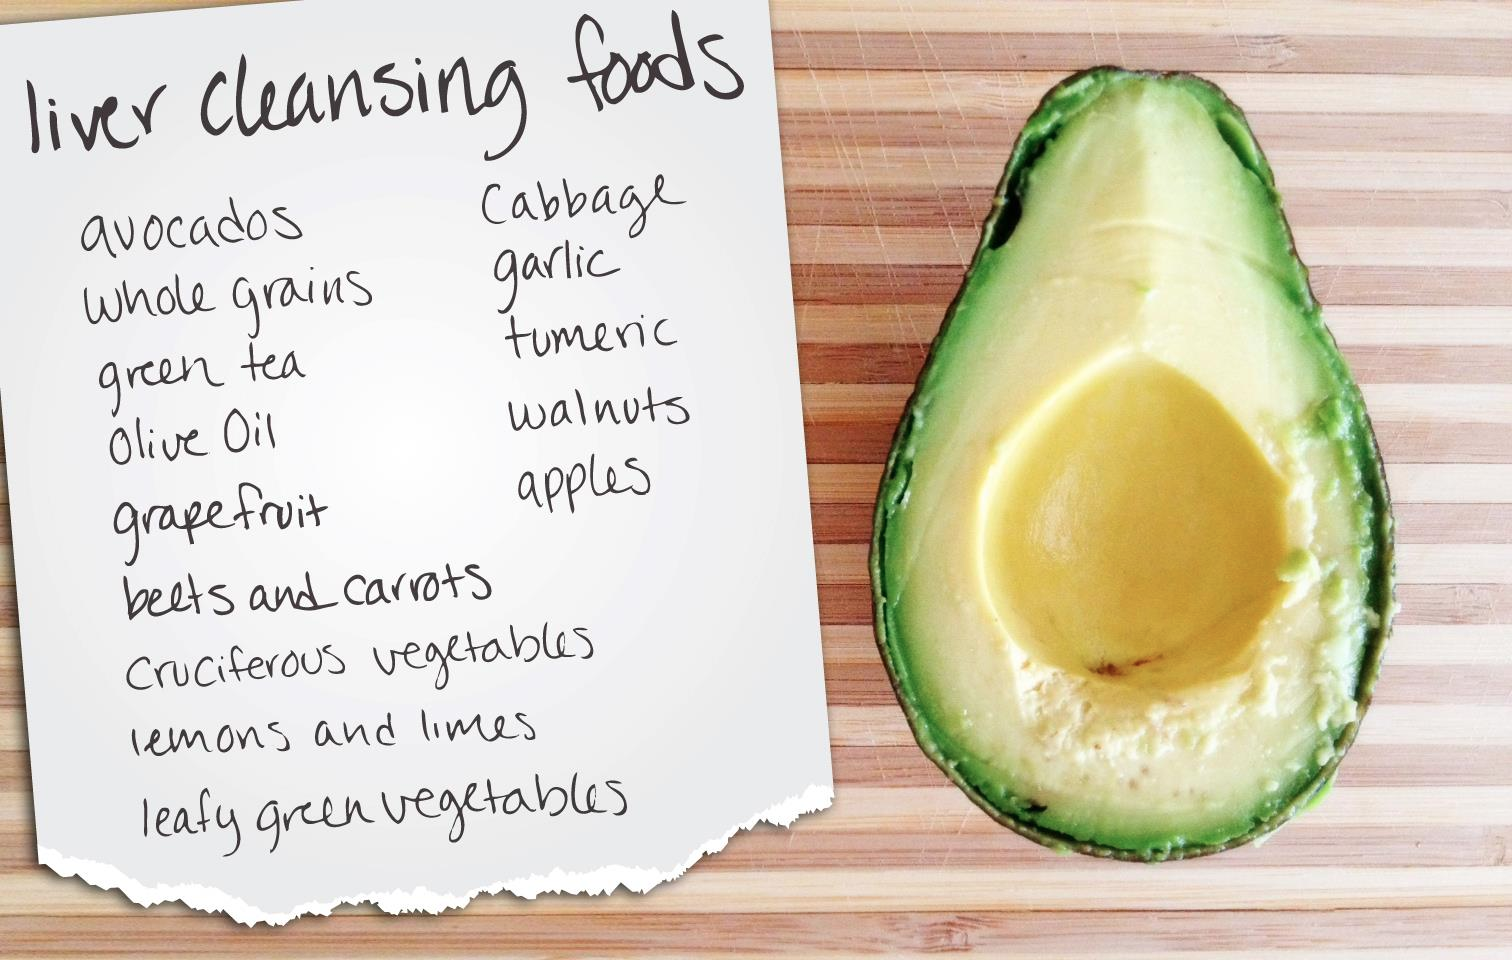 liver cleansing foods
avocados
whole grains
green tea
Olive Oil
grapefruit
beets and carrots
Cruciferous vegetables
lemons and limes
leafy green vegetables
Cabbage
garlic
tumeric
walnuts
apples